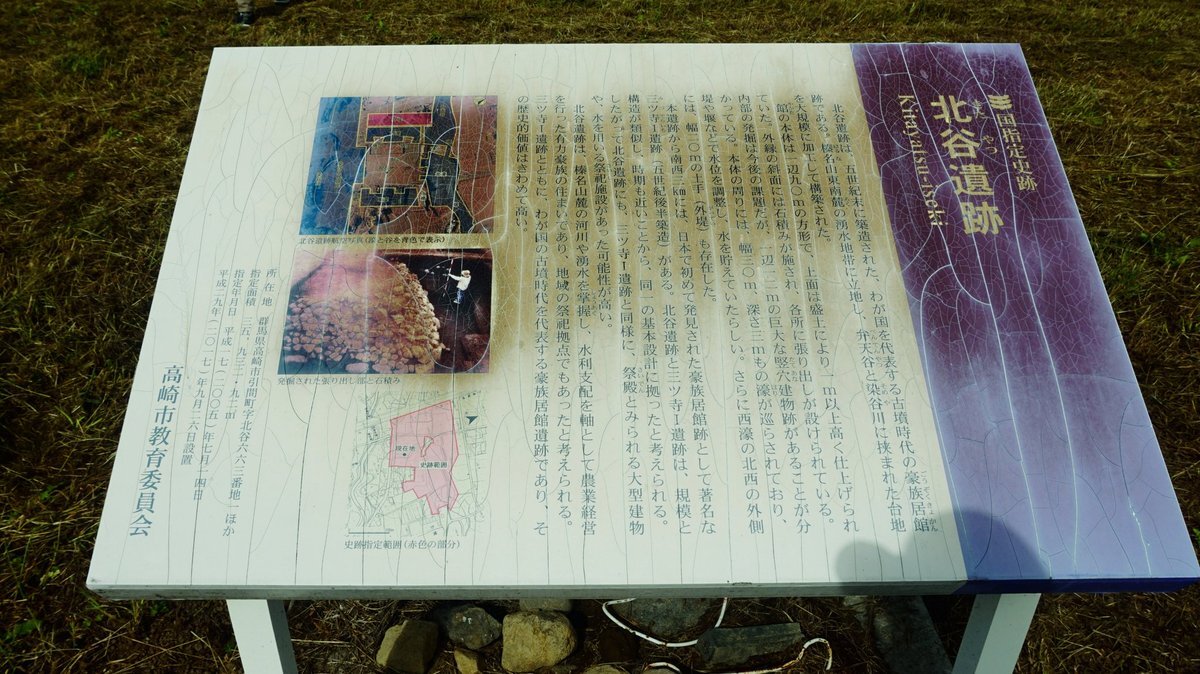 国指定史跡
北谷遺跡
きた　やつ
Kitayatsu-Iseki
北谷遺跡は、五世紀末に築造された、わが国を代表する古墳時代の豪族居館
ごうぞくきょかん
跡である。榛名山東南麓の湧水地帯に立地し、弁天谷と染谷川に挟まれた台地
を大規模に加工して構築された。
館の本体は一辺九〇mの方形で、上面は盛土により一m以上高く仕上げられ
ていた。外縁の斜面には石積みが施され、各所に張り出しが設けられている。
内部の発掘は今後の課題だが、一辺一二mの巨大な竪穴建物跡があることが分
かっている。本体の周りには、幅三〇m、深さ三mもの濠が巡らされており、
堤や堰などで水位を調整し、水を貯えていたらしい。さらに西濠の北西の外側
には、幅二〇mの土手（外堤）も存在した。
本遺跡から南西三kmには、日本で初めて発見された豪族居館跡として著名な
三ツ寺Ⅰ遺跡（五世紀後半築造）がある。北谷遺跡と三ツ寺Ⅰ遺跡は、規模と
構造が類似し、時期も近いことから、同一の基本設計に拠ったと考えられる。
したがって北谷遺跡にも、三ツ寺Ⅰ遺跡と同様に、祭殿とみられる大型建物
さいでん
や、水を用いる祭祀施設があった可能性が高い。
北谷遺跡は、榛名山麓の河川や湧水を掌握し、水利支配を軸として農業経営
を行った有力豪族の住まいであり、地域の祭祀拠点でもあったと考えられる。
三ツ寺Ⅰ遺跡とともに、わが国の古墳時代を代表する豪族居館遺跡であり、そ
の歴史的価値はきわめて高い。
北谷遺跡航空写真(濠と谷を青色で表示)
発掘された張り出し部と石積み
現在地
史跡範囲
史跡指定範囲(赤色の部分)
所在地　群馬県高崎市引間町字北谷六六三番地一ほか
指定面積　三五、九三二・九二㎡
指定年月日　平成一七(二〇〇五)年七月一四日
平成二九年(二〇一七)年九月二六日設置
高崎市教育委員会